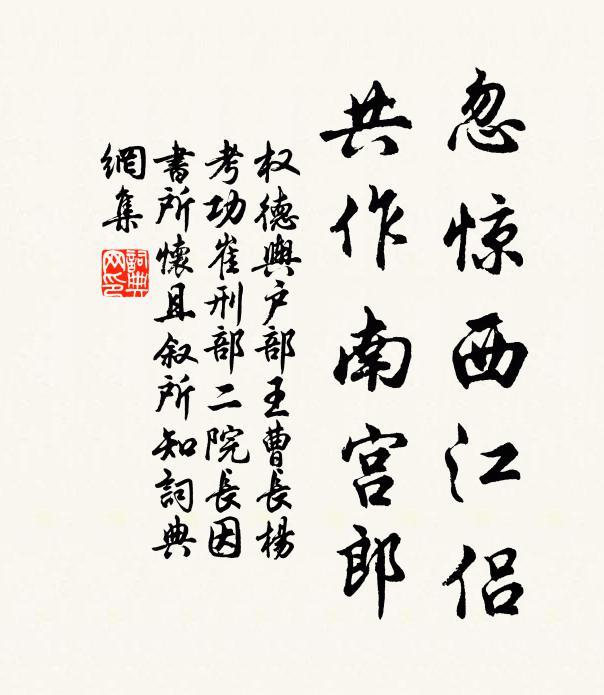 忽惊西江侣
共作南宫郎
权德舆户部王曹長楊
考功崔刑部二院長因
書所懷且叙所知詞典
網集
詞典網印